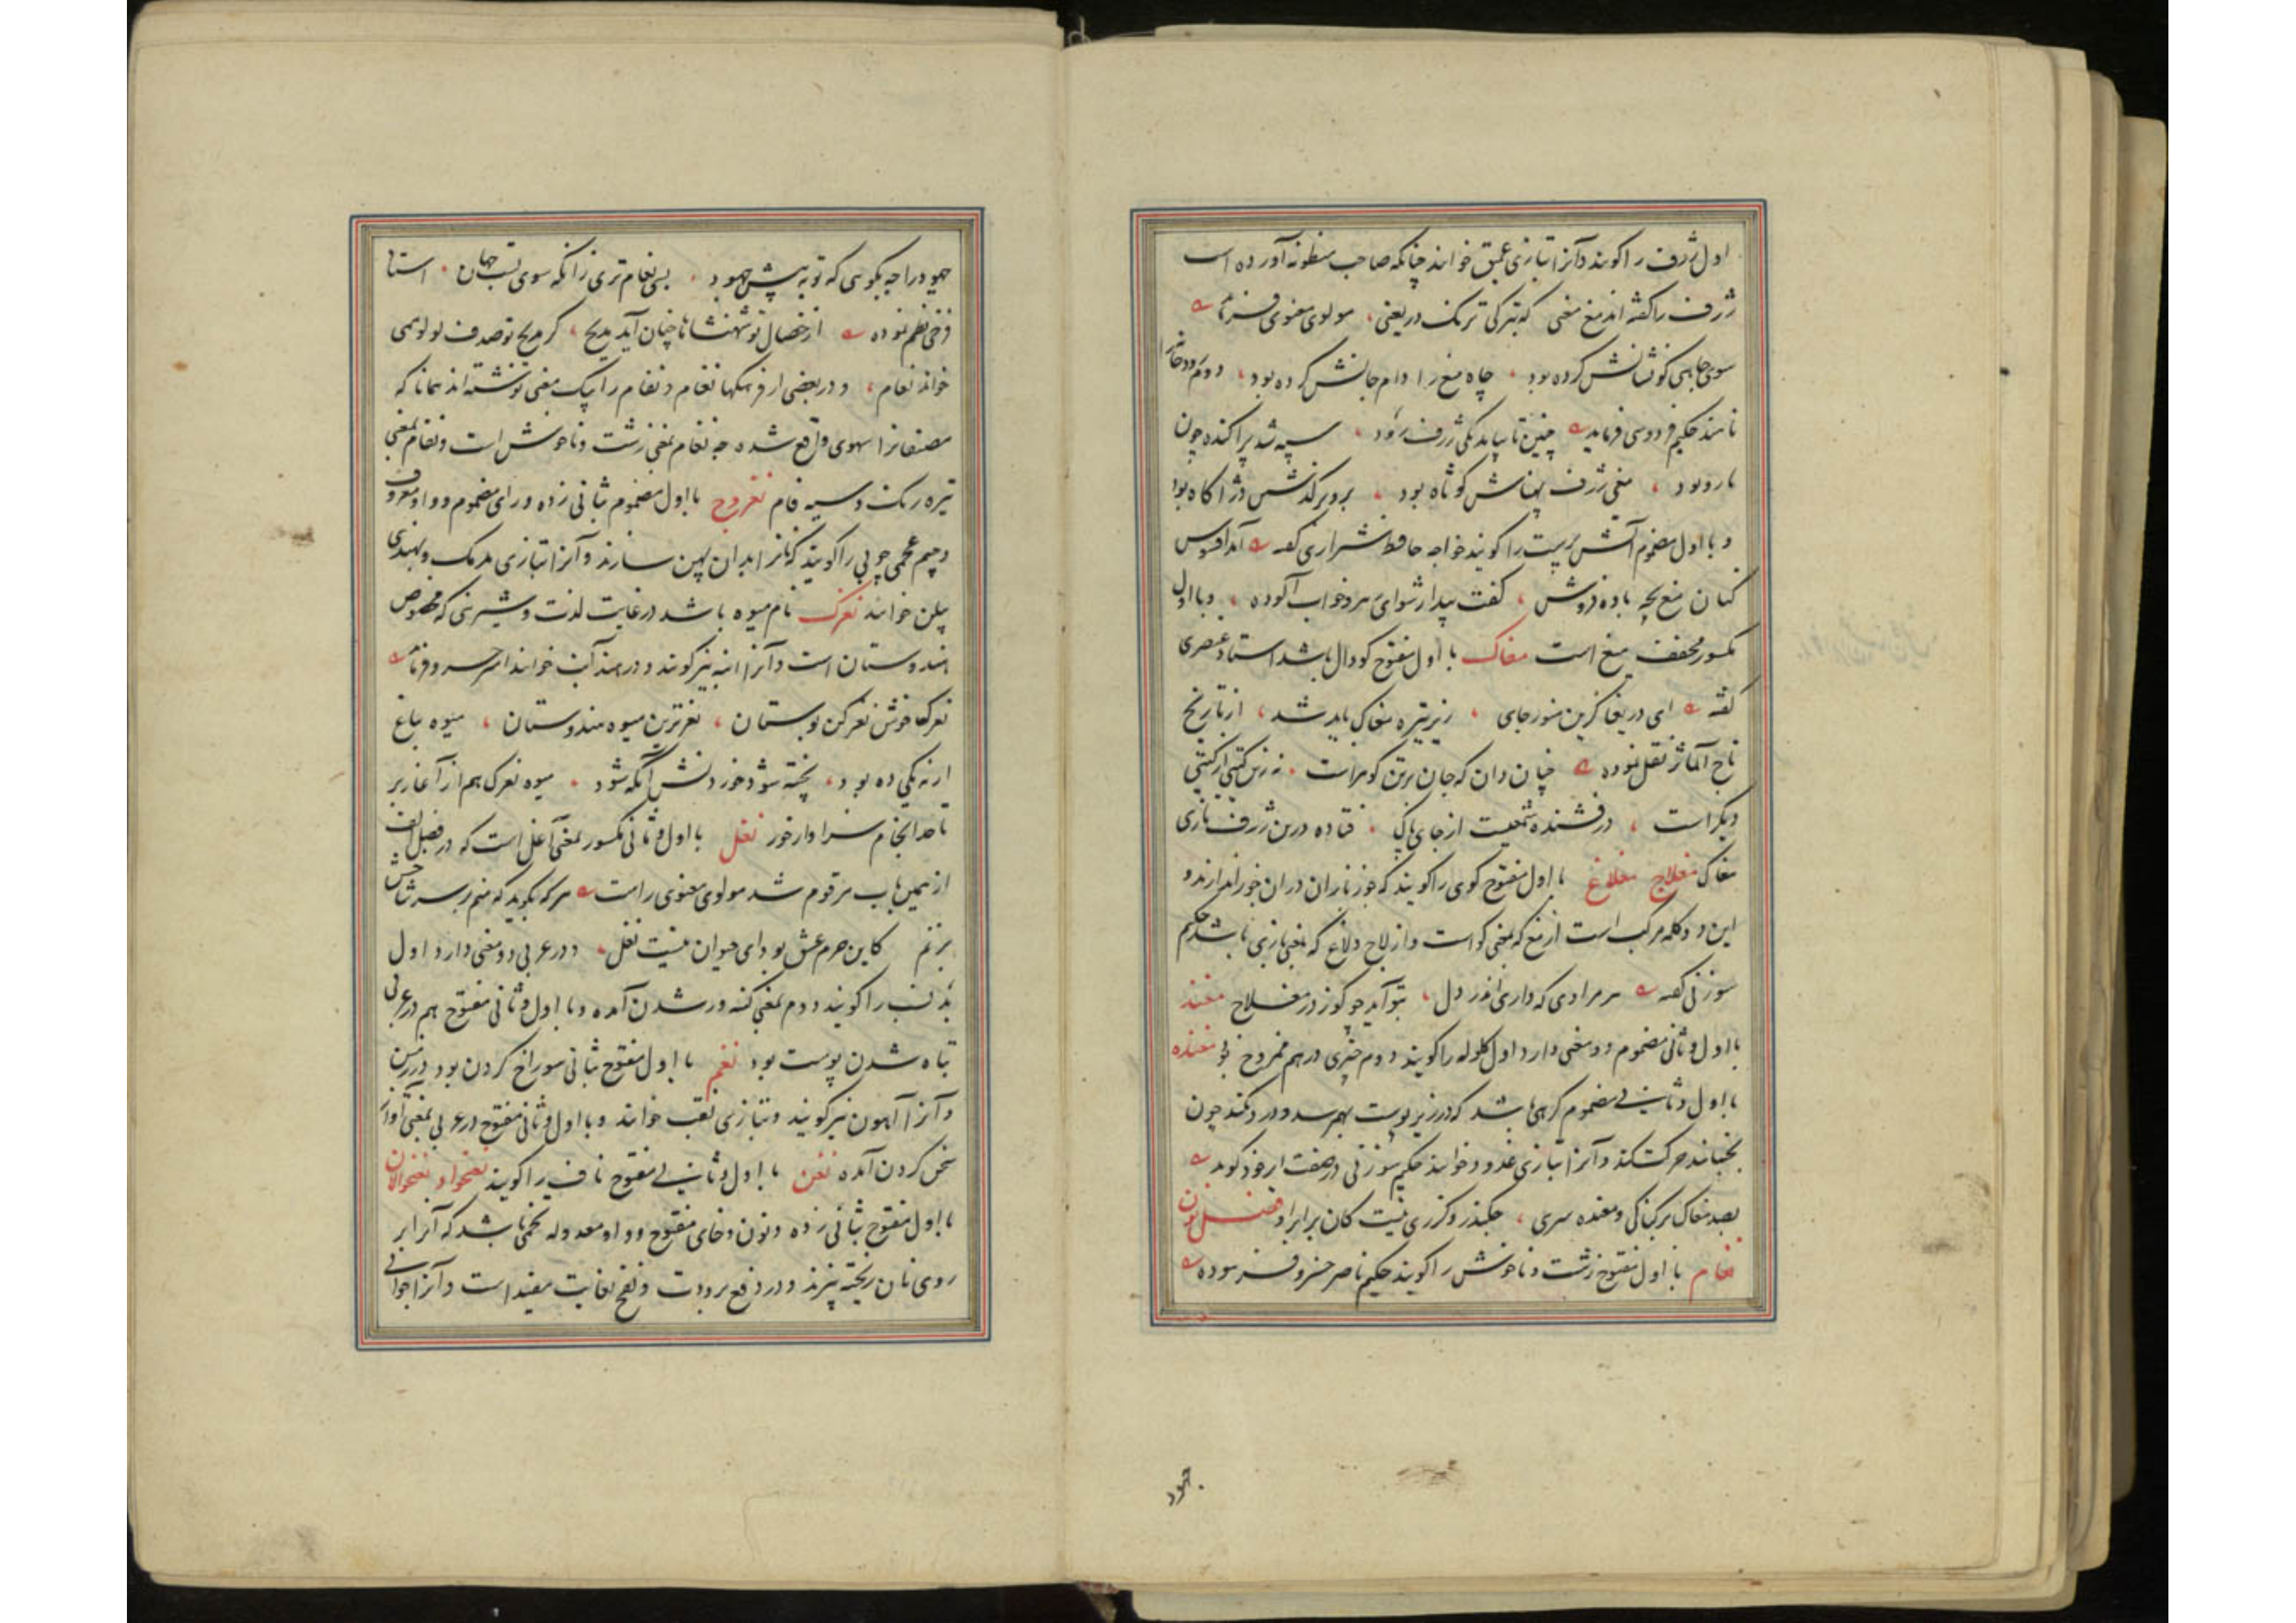 اول ژرف را کویند و آنرا بتازی عمیق خوانند چنانکه صاحب منظومه آورده است
ژرف را کفته اند مغ مغی که بترکی ترنک دریغی مولوی معنوی فرماید
سوی چاهی کو نشانش کرده بود چاه مغ را دام جانش کرده بود دوم رودخانه را
نامند حکیم فردوسی فرماید چنین تا بیامد یکی ژرف رود سپه شد پراکنده چون
تار و پود مغی ژرف پهناش کوتاه بود برو بر کذشتن دژ اکاه بود
و با اول مضموم آتش پرست را کویند خواجه حافظ شیرازی کفته آمد افسوس
کنان مغ بچه باده فروش کفت بیدار شو ای رهرو خواب آلوده و با اول
مکسور مخفف میغ است مغاک با اول مفتوح کودال باشد استاد عنصری
کفته ای دریغا کزین منور جای زیر تیره مغاک باید شد از تاریخ
تاج المآثر نقل نموده چنان دان که جان برترین کوهر است نه زین کیتی از کیتی
دیکر است درفشنده شمعیست از جای پاک فتاده درین ژرف تاری
مغاک مغلاج مغلاغ با اول مفتوح کوی را کویند که جوز بازان در آن جوز اندازند و
این دو کلمه مرکب است از مغ که بمعنی کو است و از لاج و لاغ که بمعنی بازی باشد حکیم
سوزنی کفته هر مرادی که داری اندر دل بتو آید چو کوز در مغلاج مغند
با اول و ثانی مضموم دو معنی دارد اول کلوله را کویند دوم چیزی درهم ممزوج بود مغنده
با اول و ثانی مضموم کرهی باشد که در زیر پوست بهم رسد و درد نکند چون
بجنبانند حرکت کند و آنرا بتازی غدود خوانند حکیم سوزنی در صفت ار خود کوید
بصد مغاک بر کناکی و مغنده سری جکیذر و کزری نیست کان برابر او فصل نون
نغام با اول مفتوح زشت و ناخوش را کویند حکیم ناصر خسرو فرموده
جهود
جهود را چه نکوهی که تو به پیش جهود بسی نغام تری زانکه سوی تست جهان استاد
فرخی نظم نموده از خصال تو شهنشاها چنان آید مدیح کز مدیح تو صدف لولو همی
خواند نغام و در بعضی از فرهنکها نغام و نفام را بیک معنی نوشته اند همانا که
مصنفانرا سهوی واقع شده چه نغام بمعنی زشت و ناخوش است و نفام بمعنی
تیره رنک و سیه فام نغروج با اول مضموم بثانی زده و رای مضموم و واو معروف
و جیم عجمی چوبی را کویند که نانرا بدان پهن سازند و آنرا بتازی مدمک و بهندی
بیلن خوانند نغزک نام میوه باشد در غایت لذت و شیرینی که مخصوص
هندوستان است و آنرا انبه نیز کویند و در هند آنب خوانند امیر خسرو فرماید
نغزک ما خوش نغز کن بوستان نغزترین میوه هندوستان میوه باغ
ار نه یکی ده بود پخته شود خوردنش آنکه شود میوه نغزک هم از آغاز بر
تا حد انجام سزاوار خور نغل با اول و ثانی مکسور بمعنی آغل است که در فصل الف
از همین باب مرقوم شد مولوی معنوی راست هر که بکوید که منم بر سر شاخش
بزنم کاین حرم عشق بود ای حیوان نیست نغل و در عربی دو معنی دارد اول
بد نسب را کویند دوم بمعنی کینه ور شدن آمده و با اول و ثانی مفتوح هم در عربی
تباه شدن پوست بود نغم با اول مفتوح بثانی سوراخ کردن بود در زمین
و آنرا آهون نیز کویند و بتازی نقب خوانند و با اول و ثانی مفتوح در عربی بمعنی آواز
سخن کردن آمده نغن با اول و ثانی مفتوح ناف را کویند نغنخواد نغنخوالان
با اول مفتوح بثانی زده و نون و خای مفتوح و واو معدوله تخمی باشد که آنرا بر
روی نان ریخته پزند و در دفع برودت و نفخ بغایت مفید است و آنرا جوانی